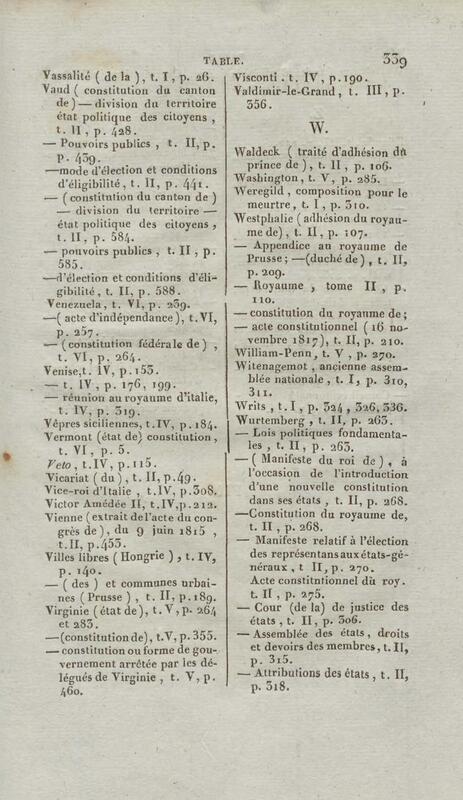 TABLE. 339
Vassalité ( de la ), t. I, p. 26.
Vaud ( constitution du canton
de) — division du territoire
état politique des citoyens ,
t. II, p. 428.
— Pouvoirs publics , t. II, p.
p. 439.
—mode d'élection et conditions
d'éligibilité, t. II, p. 441.
— ( constitution du canton de )
— division du territoire —
état politique des citoyens ,
t. II, p. 584.
— pouvoirs publics , t. II , p.
585.
—d'élection et conditions d'éli-
gibilité, t. II, p. 588.
Venezuela, t. VI, p. 239.
—( acte d'indépendance), t. VI,
p. 257.
— (constitution fédérale de) ,
t. VI, p. 264.
Venise, t. IV, p. 153.
— t. IV, p. 176, 199.
— réunion au royaume d'italie,
t. IV, p. 319.
Vêpres siciliennes, t. IV, p. 184.
Vermont (état de) constitution,
t. VI, p. 5.
Veto, t. IV, p. 115.
Vicariat ( du ), t. II, p. 49.
Vice-roi d'Italie , t. IV, p. 308.
Victor Amédée II, t. IV, p. 212.
Vienne (extrait de l'acte du con-
grès de), du 9 juin 1815 ,
t. II, p. 453.
Villes libres ( Hongrie ) , t. IV,
p. 140.
— ( des ) et communes urbai-
nes ( Prusse ) , t. II, p. 189.
Virginie (état de), t. V, p. 264
et 283.
—(constitution de), t. V, p. 355.
— constitution ou forme de gou-
vernement arrêtée par les dé-
légués de Virginie , t. V, p.
460.
Visconti . t. IV, p. 190.
Valdimir-le-Grand , t. III, p.
356.
W.
Waldeck ( traité d'adhésion du
prince de ), t. II , p. 106.
Washington, t. V, p. 285.
Weregild , composition pour le
meurtre, t. I, p. 310.
Westphalie (adhésion du royau-
me de), t. II, p. 107.
— Appendice au royaume de
Prusse ; —(duché de) , t. II,
p. 209.
— Royaume , tome II , p.
110.
— constitution du royaume de;
— acte constitutionnel ( 16 no-
vembre 1817), t. II, p. 210.
William-Penn, t. V , p. 270.
Witenagemot , ancienne assem-
blée nationale , t. I, p. 310,
311.
Writs , t. I , p. 324 , 326, 336.
Wurtemberg , t. II, p. 263.
— Lois politiques fondamenta-
les , t. II, p. 263.
— ( Manifeste du roi de ) , à
l'occasion de l'introduction
d'une nouvelle constitution
dans ses états , t. II, p. 268.
—Constitution du royaume de,
t. II , p. 268.
— Manifeste relatif à l'élection
des représentans aux états-gé-
néraux , t II , p. 270.
Acte constitntionnel du roy.
t. II , p. 275.
— Cour (de la) de justice des
états , t. II, p. 306.
— Assemblée des états, droits
et devoirs des membres, t. II,
p. 315.
— Attributions des états , t. II,
p. 318.